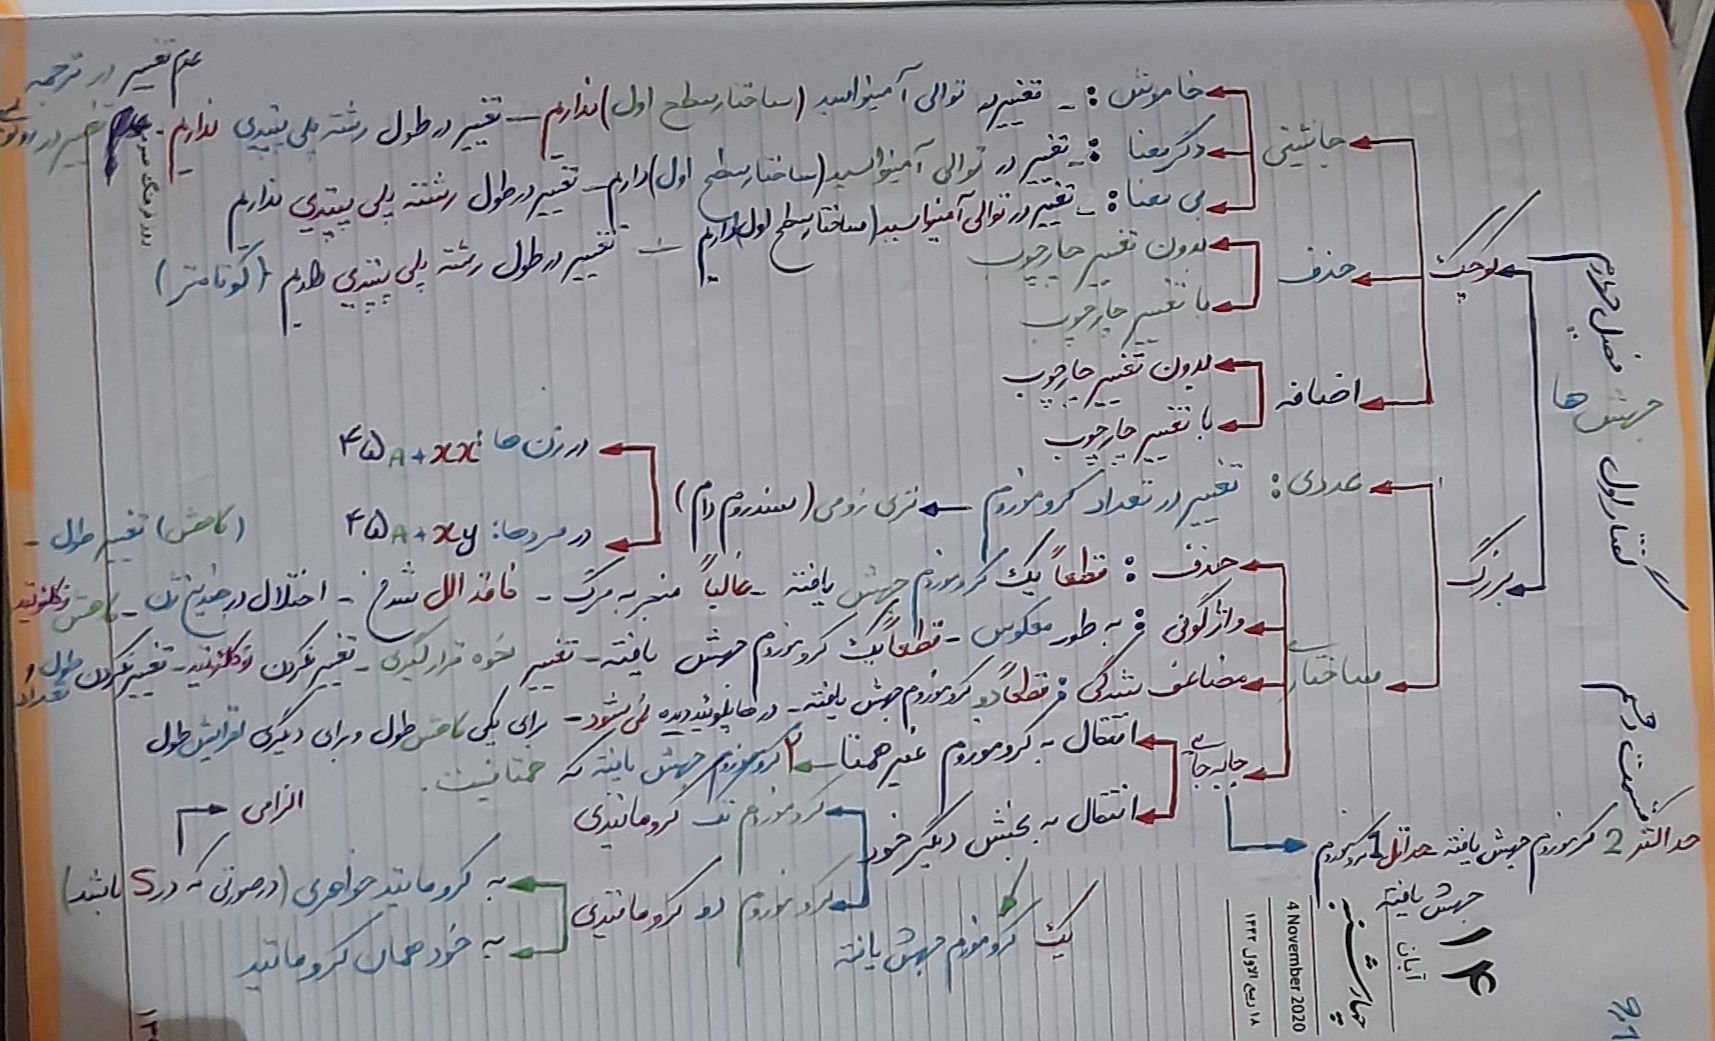 فصل چهارم
جهش ها
گفتار اول
قسمت دهم
عدم تغییر در ترجمه
کوچک
جانشینی
خاموش : - تغییر در توالی آمینواسید (ساختار سطح اول) نداریم - تغییر در طول رشته پلی پپتیدی نداریم -
دگرمعنا : - تغییر در توالی آمینواسید (ساختار سطح اول) داریم - تغییر در طول رشته پلی پپتیدی نداریم
بی معنا : - تغییر در توالی آمینواسید (ساختار سطح اول) داریم - تغییر در طول رشته پلی پپتیدی داریم (کوتاه‌تر)
حذف
بدون تغییر چارچوب
با تغییر چارچوب
اضافه
بدون تغییر چارچوب
با تغییر چارچوب
بزرگ
عددی : تغییر در تعداد کروموزوم
تری زومی (سندروم دام)
در زن ها : ۴۵A + xx
در مردها : ۴۵A + xy
(کاهش) تغییر طول -
ساختاری
حذف : قطعاً یک کروموزوم جهش یافته - غالباً منجر به مرگ - فاقد الل شدن - اختلال در چندین ژن - کاهش نوکلئوتید
واژگونی : به طور معکوس - قطعاً یک کروموزوم جهش یافته - تغییر نحوه قرارگیری - تغییر نکردن نوکلئوتید - تغییر نکردن طول و تعداد
مضاعف شدگی : قطعاً دو کروموزوم جهش یافته - در هاپلوئید دیده نمی شود - برای یکی کاهش طول و برای دیگری افزایش طول
جابه جایی
انتقال به کروموزوم غیر همتا
۲ کروموزوم جهش یافته که همتا نیست .
انتقال به بخش دیگر خود
کروموزوم تک کروماتیدی
کروموزوم دو کروماتیدی
به کروماتید خواهری (در صورتی که در S باشد)
الزامی
به خود همان کروماتید
یک کروموزوم جهش یافته
حداکثر 2 کروموزوم جهش یافته حداقل 1 کروموزوم
جهش یافته
۱۴
آبان
چهارشنبه
4 November 2020
۱۸ ربیع الاول ۱۴۴۲